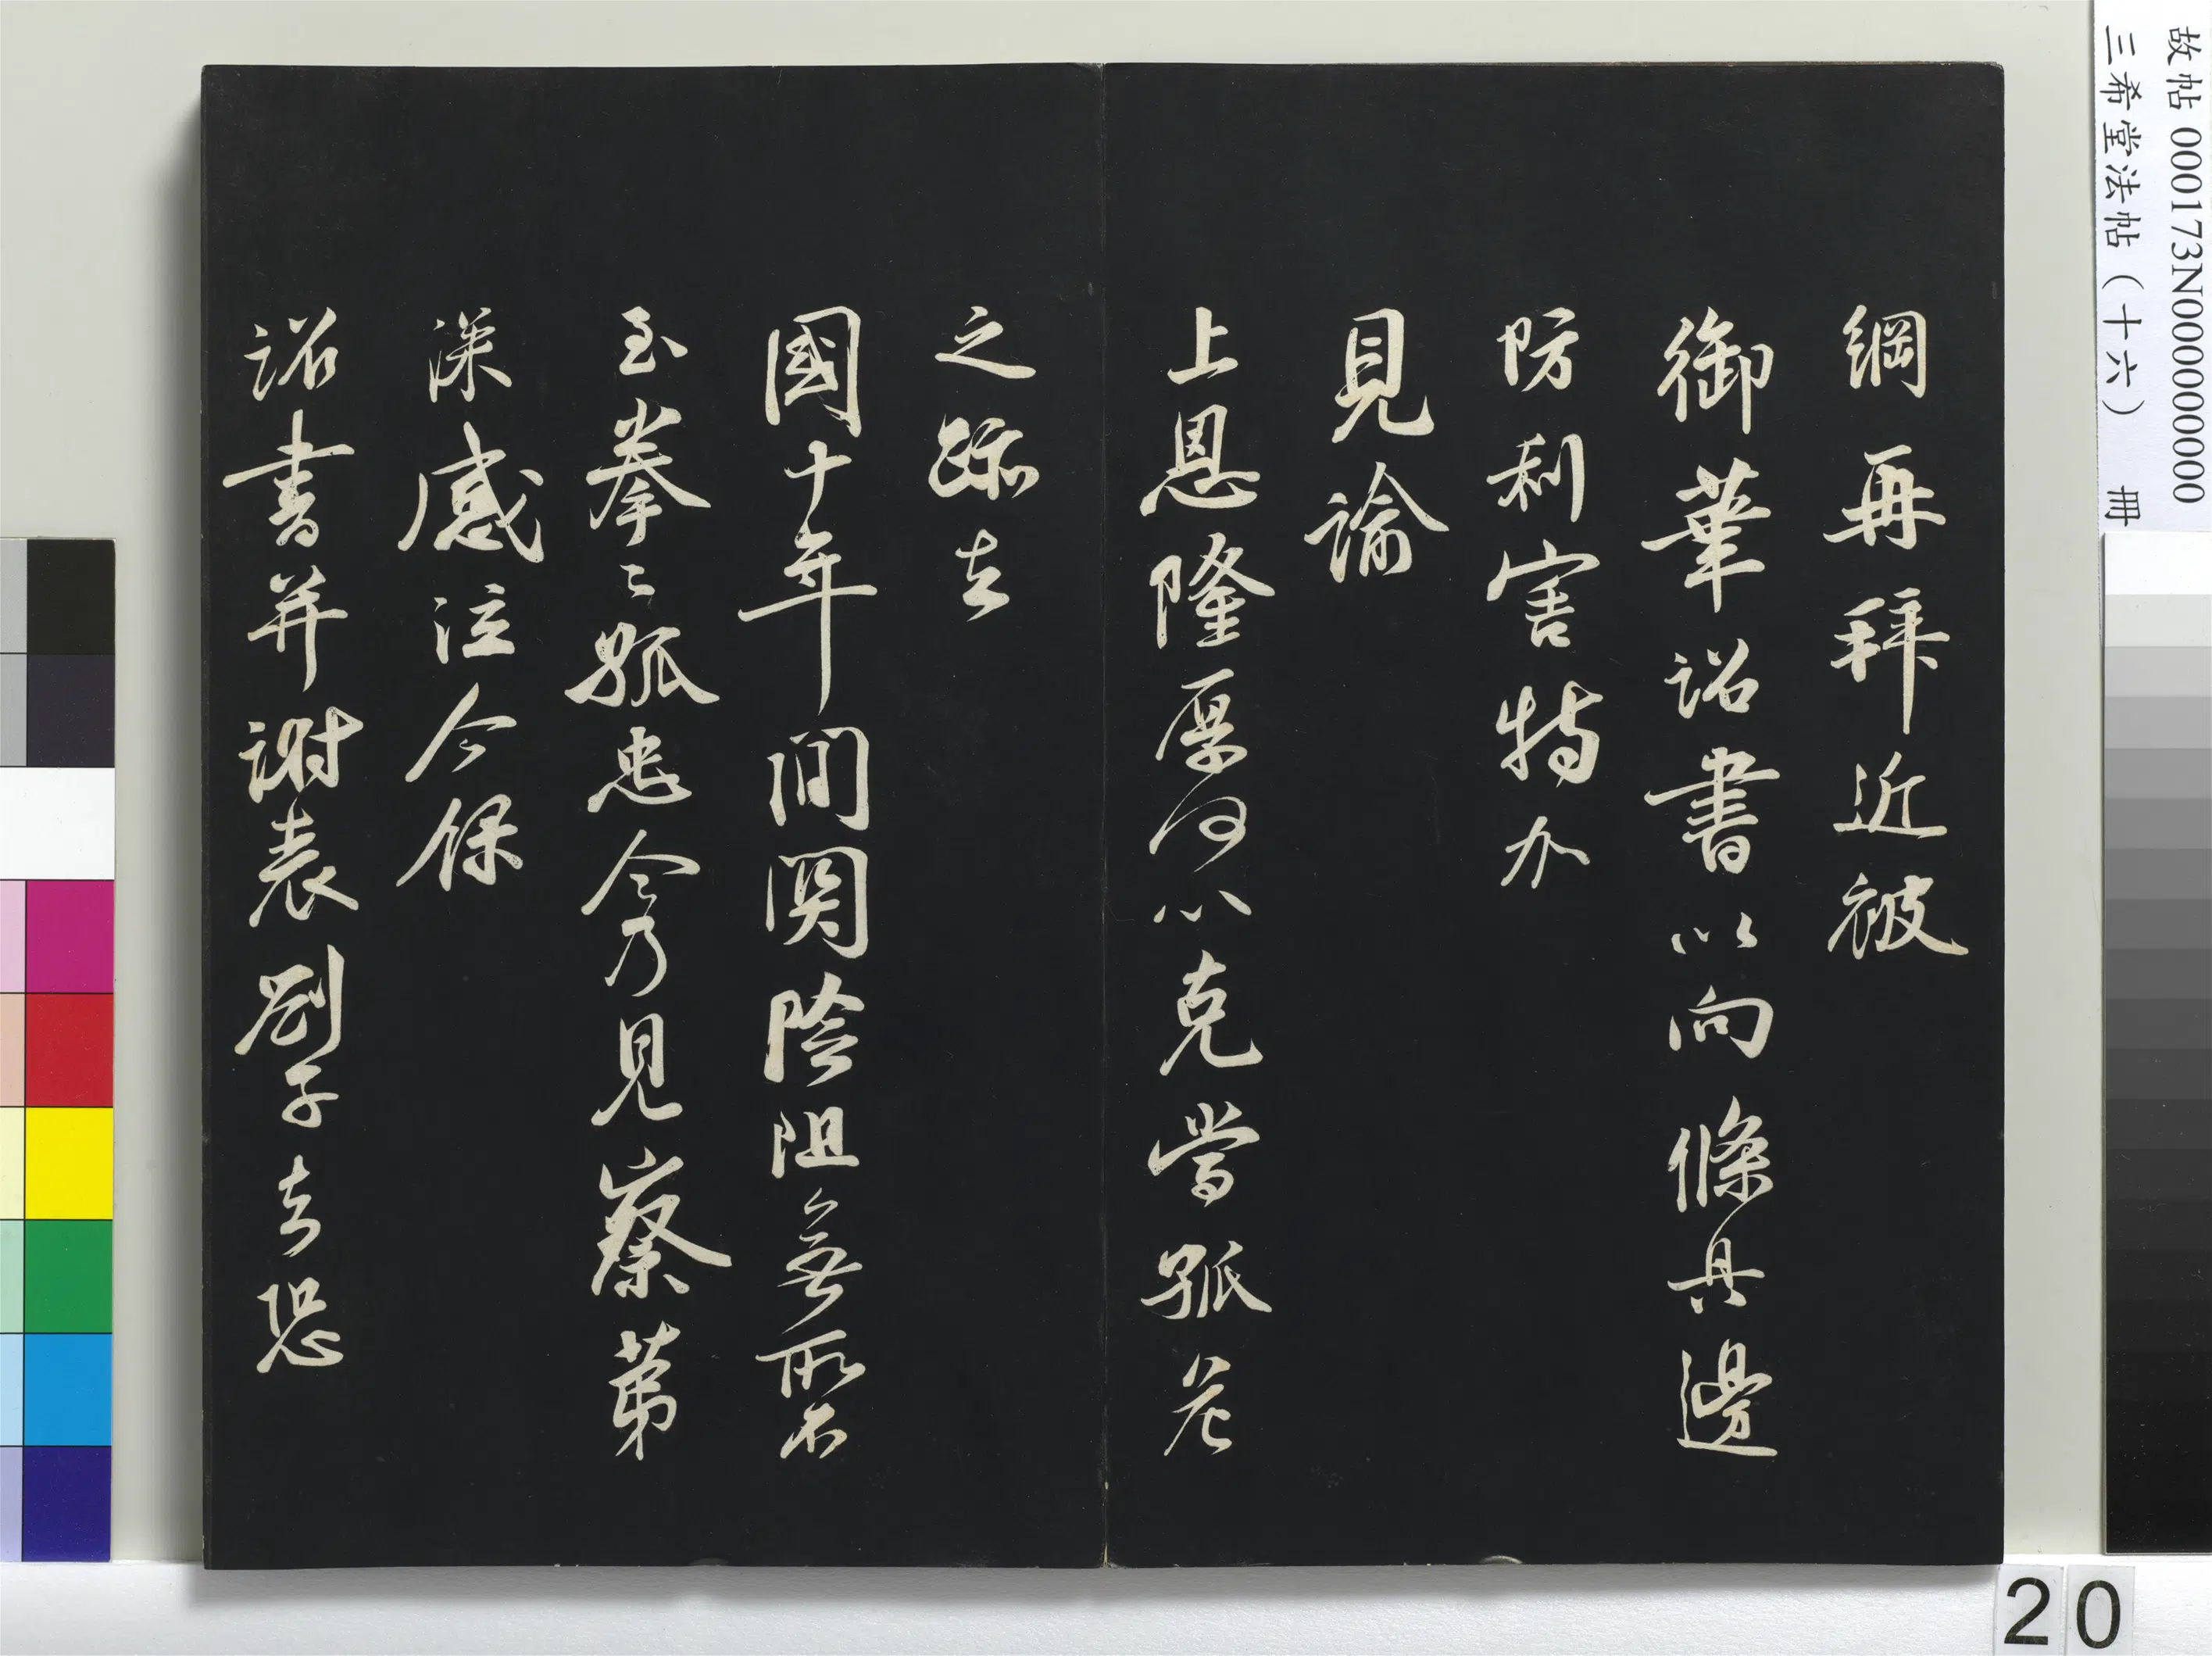 綱再拜近被
御筆詔書以向條具邊
防利害特加
見諭
上恩隆厚何以克當孤危
之跡去
國十年間関險阻無所不
至拳々孤忠今乃見察第
深感泣今保
詔書并謝表劄子去恐
故帖 000173N000000000
三希堂法帖（十六） 冊
20